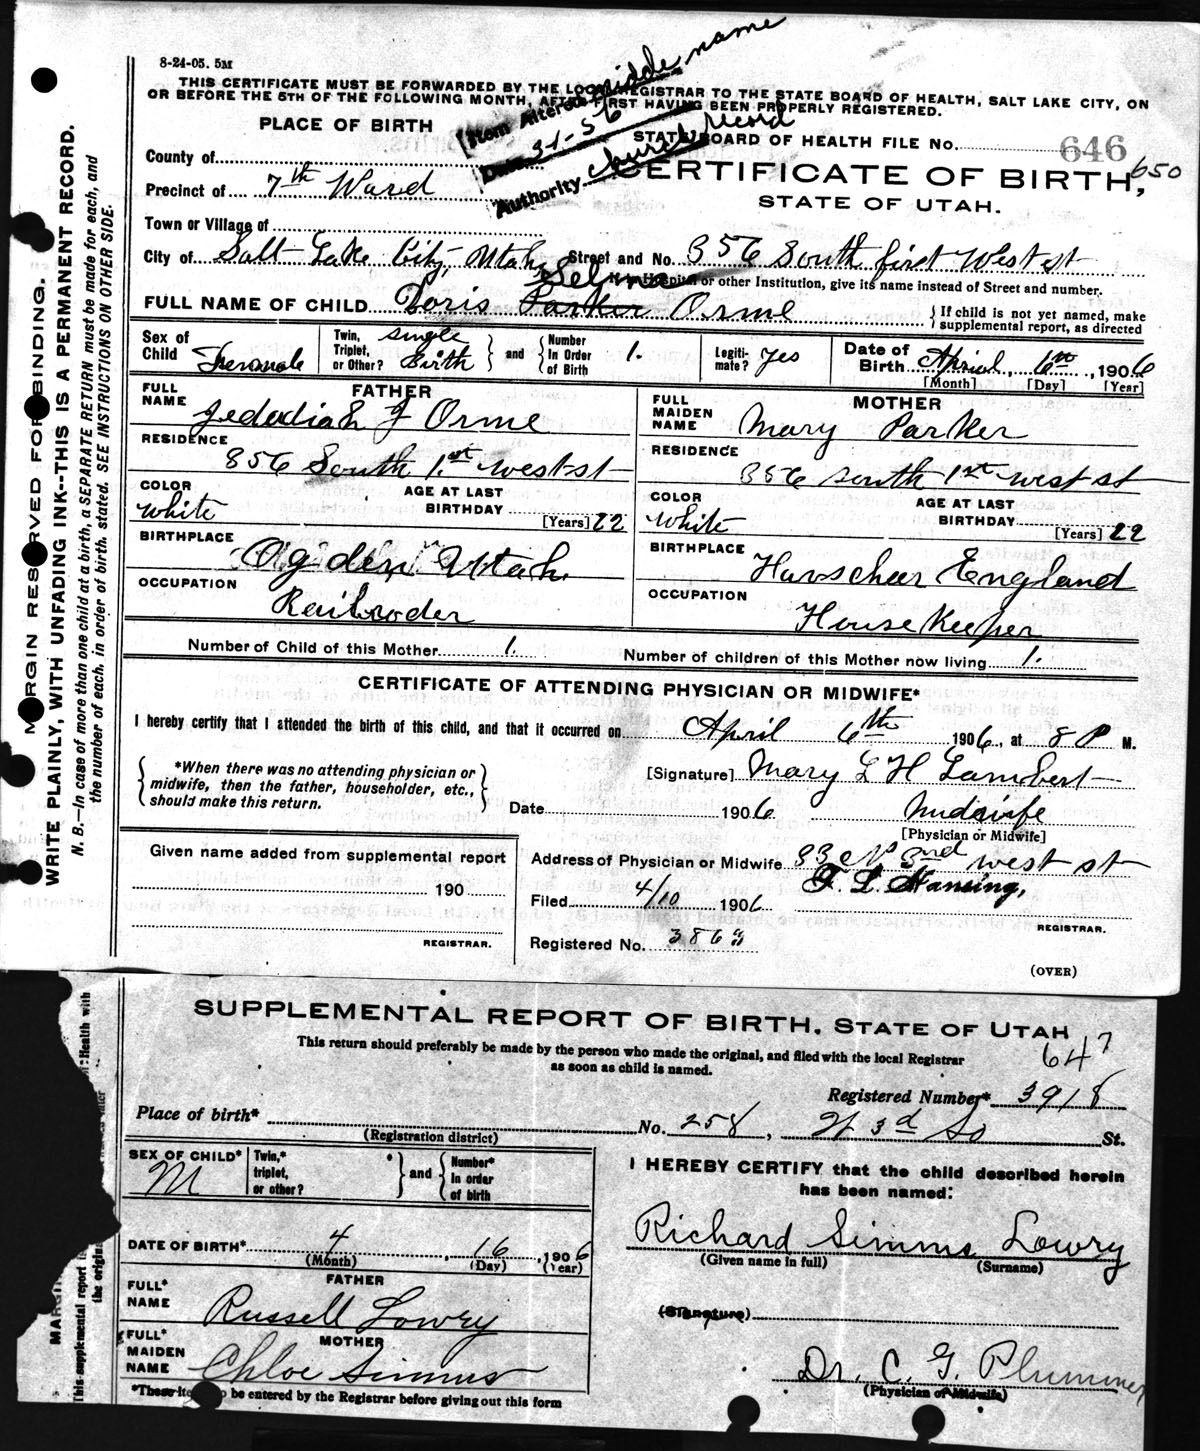 8-24-05. 5M
THIS CERTIFICATE MUST BE FORWARDED BY THE LOCAL REGISTRAR TO THE STATE BOARD OF HEALTH, SALT LAKE CITY, ON
OR BEFORE THE 5TH OF THE FOLLOWING MONTH, AFTER FIRST HAVING BEEN PROPERLY REGISTERED.
Item Altered middle name
Date 3-1-56
Authority church record
PLACE OF BIRTH
STATE BOARD OF HEALTH FILE No. 646
650
County of
CERTIFICATE OF BIRTH,
Precinct of 7th Ward
STATE OF UTAH.
Town or Village of
City of Salt Lake City, Utah Street and No. 356 South first West st
If in Hospital or other Institution, give its name instead of Street and number.
Selma
FULL NAME OF CHILD Doris Parker Orme
{ If child is not yet named, make
supplemental report, as directed
Sex of Child Female
Twin, Triplet, or Other? single Birth } and { Number In Order of Birth 1.
Legiti-mate? yes
Date of Birth April, 6th, 1906
[Month] [Day] [Year]
FATHER
FULL NAME Jedediah J Orme
RESIDENCE 356 South 1.st west st
COLOR white
AGE AT LAST BIRTHDAY [Years] 22
BIRTHPLACE Ogden Utah.
OCCUPATION Railroder
MOTHER
FULL MAIDEN NAME Mary Parker
RESIDENCE 356 south 1st west st
COLOR White
AGE AT LAST BIRTHDAY [Years] 22
BIRTHPLACE England
OCCUPATION House Keeper
Number of Child of this Mother 1.
Number of children of this Mother now living 1.
CERTIFICATE OF ATTENDING PHYSICIAN OR MIDWIFE*
I hereby certify that I attended the birth of this child, and that it occurred on April 6th 1906, at 8 P M.
{ *When there was no attending physician or
midwife, then the father, householder, etc.,
should make this return. }
[Signature] Mary L H Lambert
Date 1906 Midwife
[Physician or Midwife]
Given name added from supplemental report
190
REGISTRAR.
Address of Physician or Midwife 33 N 3rd west st
Filed 4/10 1906 T. L. Hansing,
REGISTRAR.
Registered No. 3863
(OVER)
MARGIN RESERVED FOR BINDING.
WRITE PLAINLY, WITH UNFADING INK--THIS IS A PERMANENT RECORD.
N. B.—In case of more than one child at a birth, a SEPARATE RETURN must be made for each, and
the number of each, in order of birth, stated. SEE INSTRUCTIONS ON OTHER SIDE.
SUPPLEMENTAL REPORT OF BIRTH. STATE OF UTAH
This return should preferably be made by the person who made the original, and filed with the local Registrar
as soon as child is named.
647
Registered Number* 3918
Place of birth* No. 258, W 3d So St.
(Registration district)
SEX OF CHILD* M
Twin,* triplet, or other? } and { Number* In order of birth
DATE OF BIRTH* 4, 16, 1906
(Month) (Day) (Year)
FATHER
FULL* NAME Russell Lowry
MOTHER
FULL* MAIDEN NAME Chloe Simms
*These items to be entered by the Registrar before giving out this form
I HEREBY CERTIFY that the child described herein
has been named:
Richard Simms Lowry
(Given name in full) (Surname)
(Signature)
Dr. C. G. Plummer
(Physician or Midwife)